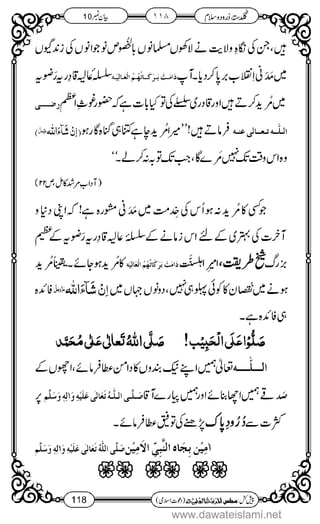 گلدستۂ درود و سلام ١١٨ بیان نمبر 10
ہیں، جن کی نگاہِ ولایت نے لاکھوں مسلمانوں بالخصوص نوجوانوں کی زندگیوں
میں مَدَنی انقلاب برپا کردیا۔ آپ دَامَتْ بَرَکَاتُہُمُ الْعَالِیَہ سلسلۂ عالیہ قادِریہ رضویہ
میں مُرید کرتے ہیں اور قادری سلسلے کی تو کیا بات ہے کہ حضورِ غوثِ اعظم رَضِیَ
اللہُ تَعَالٰی عَنْہ فرماتے ہیں! ’’میرا مُرید چاہے کتنا ہی گناہ گار ہو (اِنْ شَآءَ اللہ عَزَّوَجَلَّ)
وہ اس وقت تک نہیں مَرے گا، جب تک توبہ نہ کرلے۔‘‘
(آدابِ مرشدِ کامل، ص ۲۲)
جو کسی کا مُرید نہ ہو اُس کی خدمت میں مَدَنی مشورہ ہے! کہ اپنی دنیا و
آخرت کی بہتری کے لئے اُس زمانے کے سلسلۂ عالیہ قادِریہ رضویہ کے عظیم
بزرگ شیخِ طریقت، امیرِ اہلسنّت دَامَتْ بَرَکَاتُہُمُ الْعَالِیَہ کا مُرید ہو جائے۔ یقیناً مُرید
ہونے میں نقصان کا کوئی پہلو ہی نہیں، دونوں جہاں میں اِنْ شَآءَ اللہ عَزَّوَجَلَّ فائدہ
ہی فائدہ ہے۔
صَلُّوْا عَلَی الْحَبِیْب! صَلَّی اللہُ تَعَالٰی عَلٰی مُحَمَّد
اللہ تعالٰی ہمیں اپنے نیک بندوں کا دامن عطا فرمائے، اچھوں کے
صَدْقے ہمیں اچھا بنائے اور ہمیں پیارے آقا صَلَّی اللہُ تَعَالٰی عَلَیْہِ وَاٰلِہٖ وَسَلَّم پر
کثرت سے دُرُودِ پاک پڑھنے کی توفیق عطا فرمائے۔
اٰمِیْن بِجَاہِ النَّبِیِّ الْاَمِیْن صَلَّی اللہُ تَعَالٰی عَلَیْہِ وَاٰلِہٖ وَسَلَّم
118 پیش کش: مجلس المدینۃ العلمیۃ (دعوتِ اسلامی)
www.dawateislami.net